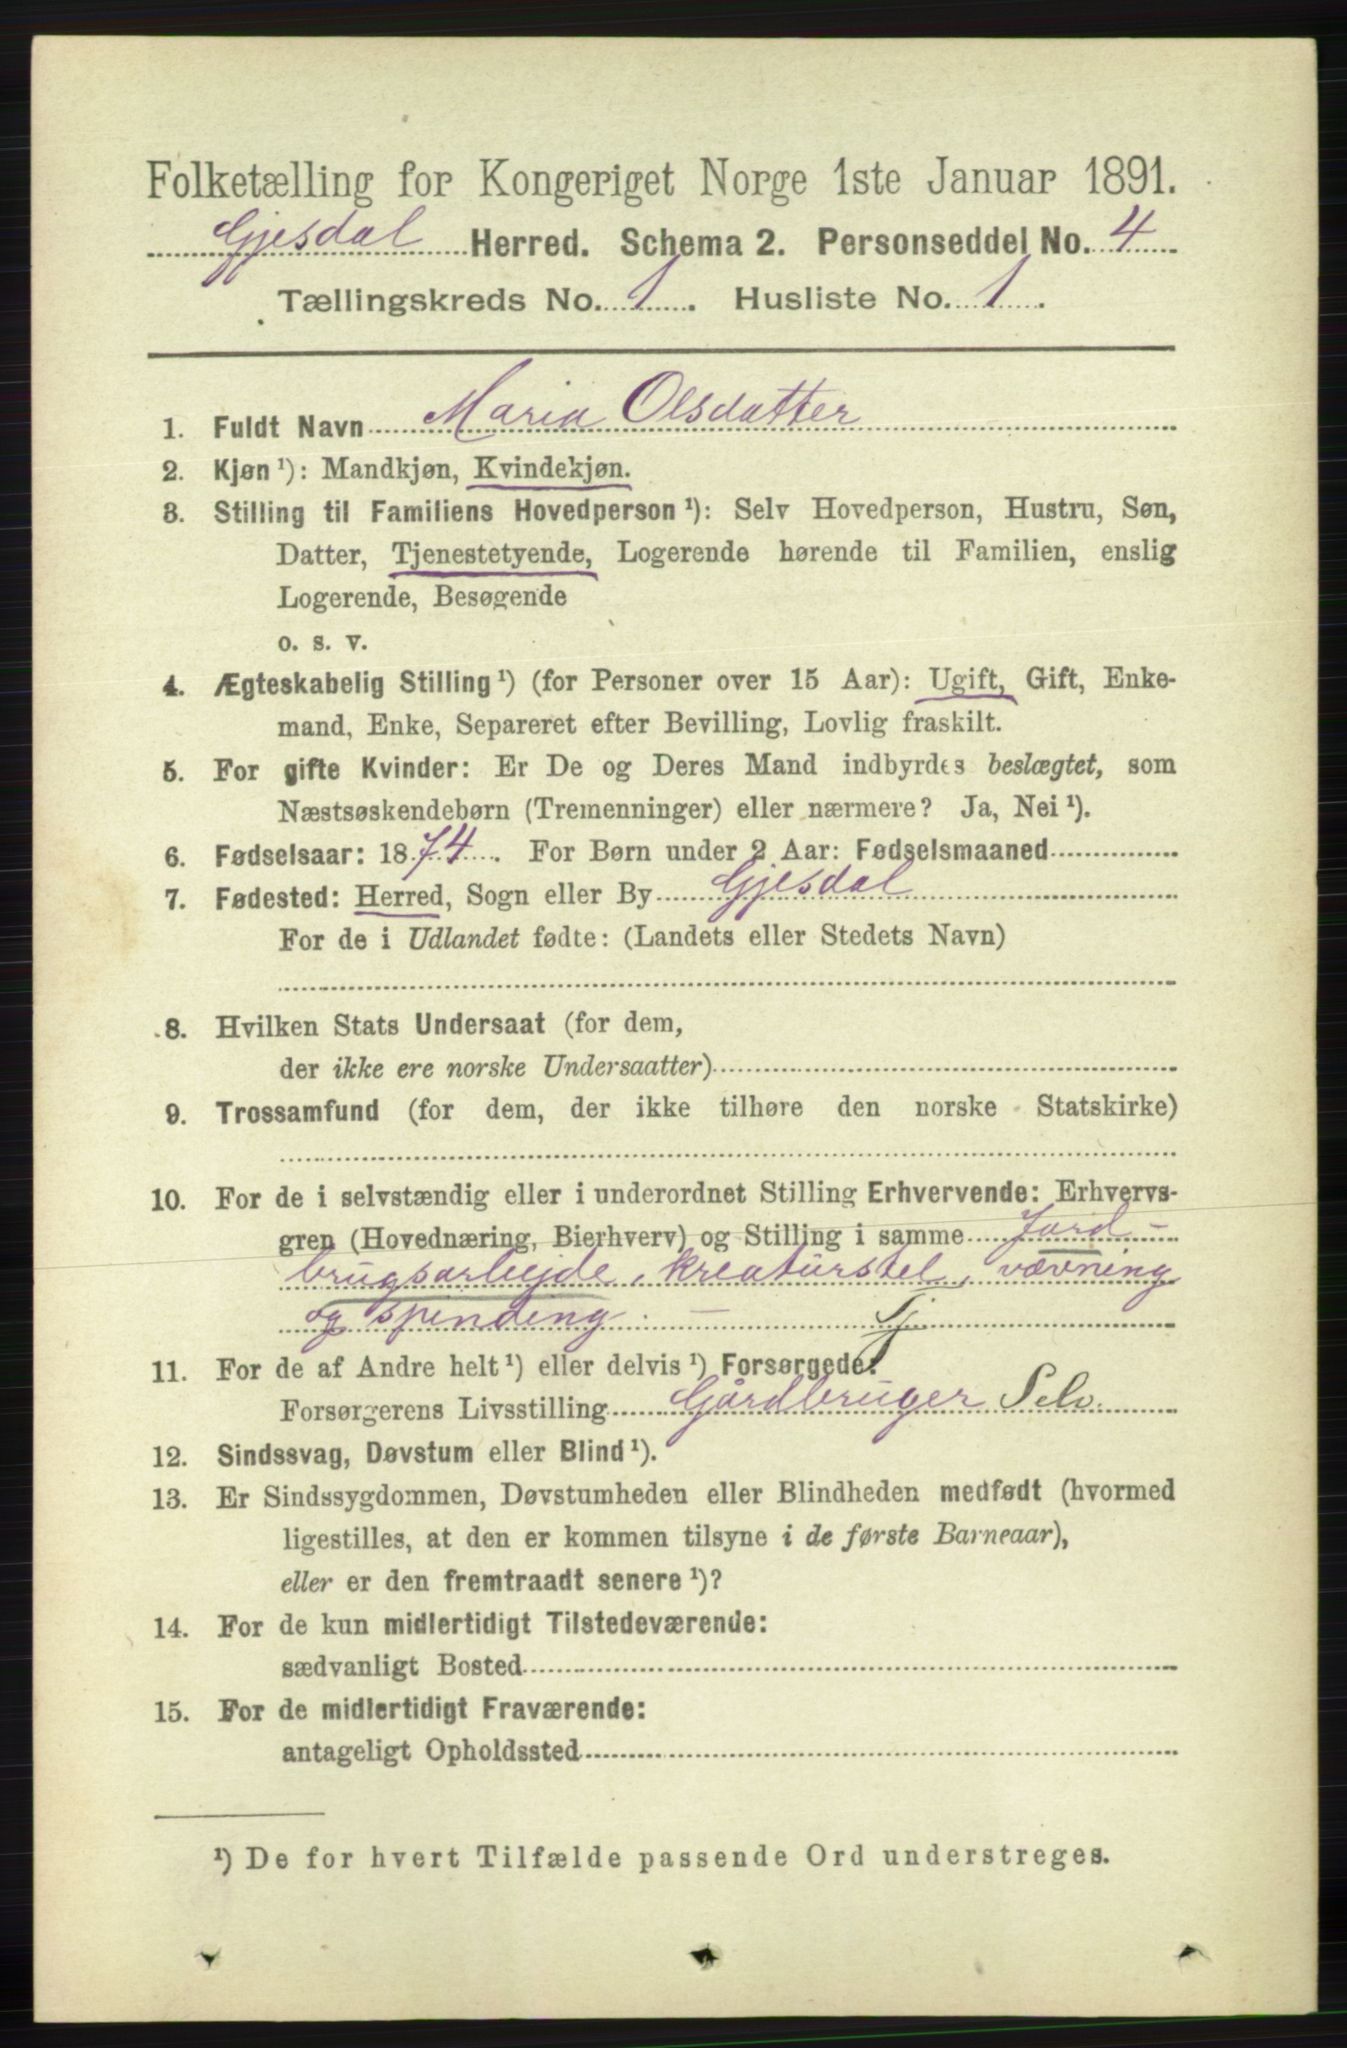 Folketælling for Kongeriget Norge 1ste Januar 1891.
Gjesdal Herred. Schema 2. Personseddel No. 4
Tællingskreds No. 1. Husliste No. 1.
1. Fuldt Navn Maria Olsdatter
2. Kjøn ¹): Mandkjøn, Kvindekjøn.
3. Stilling til Familiens Hovedperson ¹): Selv Hovedperson, Hustru, Søn,
Datter, Tjenestetyende, Logerende hørende til Familien, enslig
Logerende, Besøgende
o. s. v.
4. Ægteskabelig Stilling ¹) (for Personer over 15 Aar): Ugift, Gift, Enke-
mand, Enke, Separeret efter Bevilling, Lovlig fraskilt.
5. For gifte Kvinder: Er De og Deres Mand indbyrdes beslægtet, som
Næstsøskendebørn (Tremenninger) eller nærmere? Ja, Nei ¹).
6. Fødselsaar: 1874. For Børn under 2 Aar: Fødselsmaaned
7. Fødested: Herred, Sogn eller By Gjesdal
For de i Udlandet fødte: (Landets eller Stedets Navn)
8. Hvilken Stats Undersaat (for dem,
der ikke ere norske Undersaatter)
9. Trossamfund (for dem, der ikke tilhøre den norske Statskirke)
10. For de i selvstændig eller i underordnet Stilling Erhvervende: Erhvervs-
gren (Hovednæring, Bierhverv) og Stilling i samme Jord-
brugsarbejde, kreaturstel, vævning
og spinding. — Tj
11. For de af Andre helt ¹) eller delvis ¹) Forsørgede:
Forsørgerens Livsstilling Gårdbruger Selv.
12. Sindssvag, Døvstum eller Blind ¹).
13. Er Sindssygdommen, Døvstumheden eller Blindheden medfødt (hvormed
ligestilles, at den er kommen tilsyne i de første Barneaar),
eller er den fremtraadt senere ¹)?
14. For de kun midlertidigt Tilstedeværende:
sædvanligt Bosted
15. For de midlertidigt Fraværende:
antageligt Opholdssted
¹) De for hvert Tilfælde passende Ord understreges.